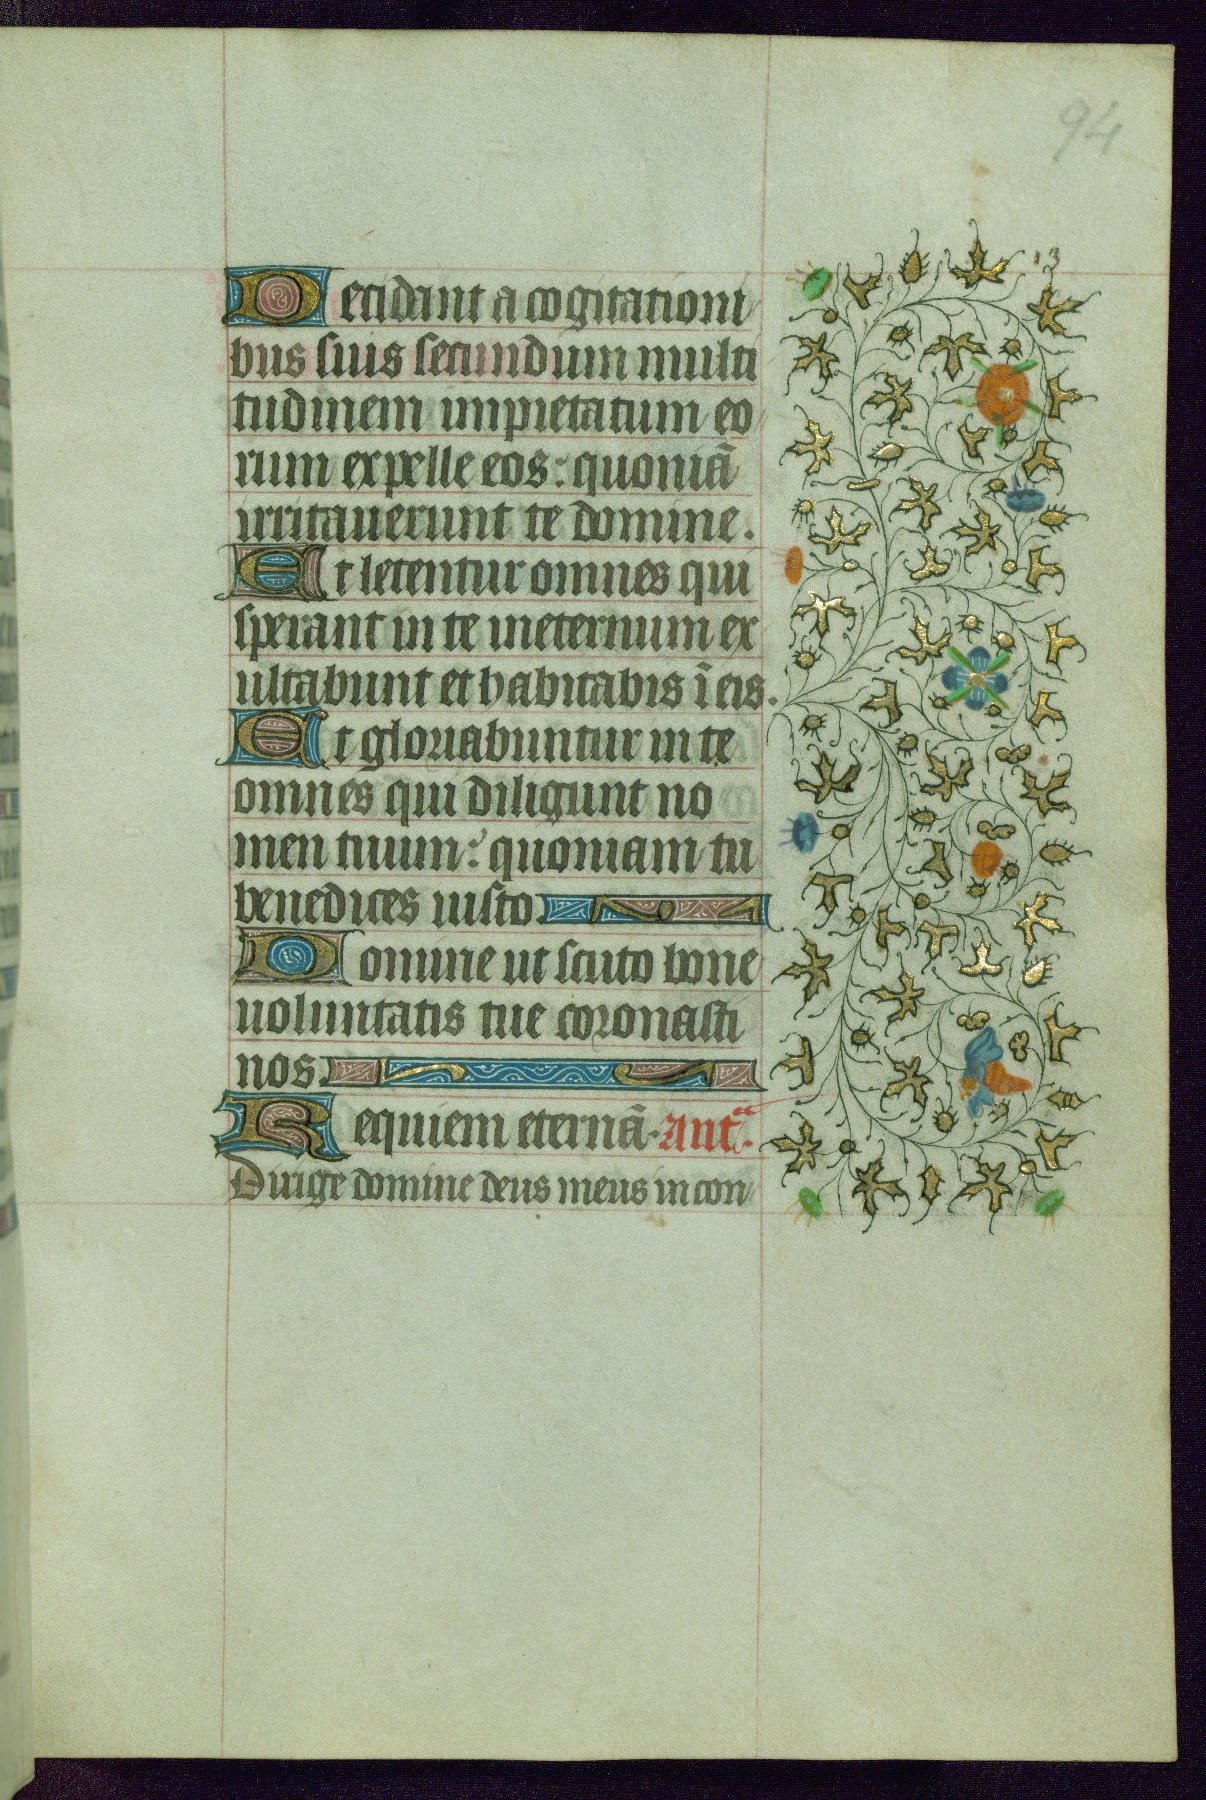 94
13
Decidant a cogitationi
bus suis secundum multi
tudinem impietatum eo
rum expelle eos: quoniã
irritauerunt te domine.
Et letentur omnes qui
sperant in te ineternum ex
ultabunt et habitabis ĩ eis.
Et gloriabuntur in te
omnes qui diligunt no
men tuum: quoniam tu
benedices iusto.
Domine ut scuto bone
uoluntatis tue coronasti
nos.
Requiem eternã. Antᵃ.
Dirige domine deus meus in con